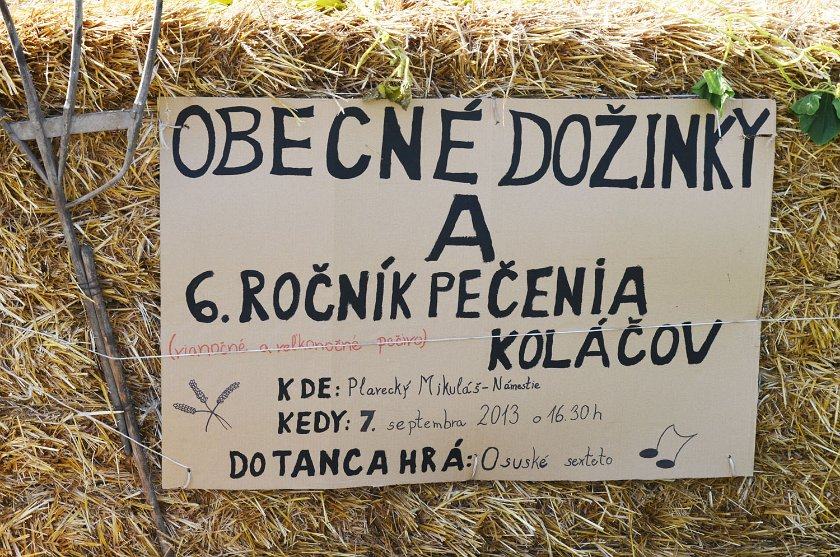 OBECNÉ DOŽINKY
A
6. ROČNÍK PEČENIA
KOLÁČOV
(vianočné a veľkonočné pečivo)
KDE: Plavecký Mikuláš - Námestie
KEDY: 7. septembra 2013 o 16.30h
DO TANCA HRÁ: Osuské sexteto